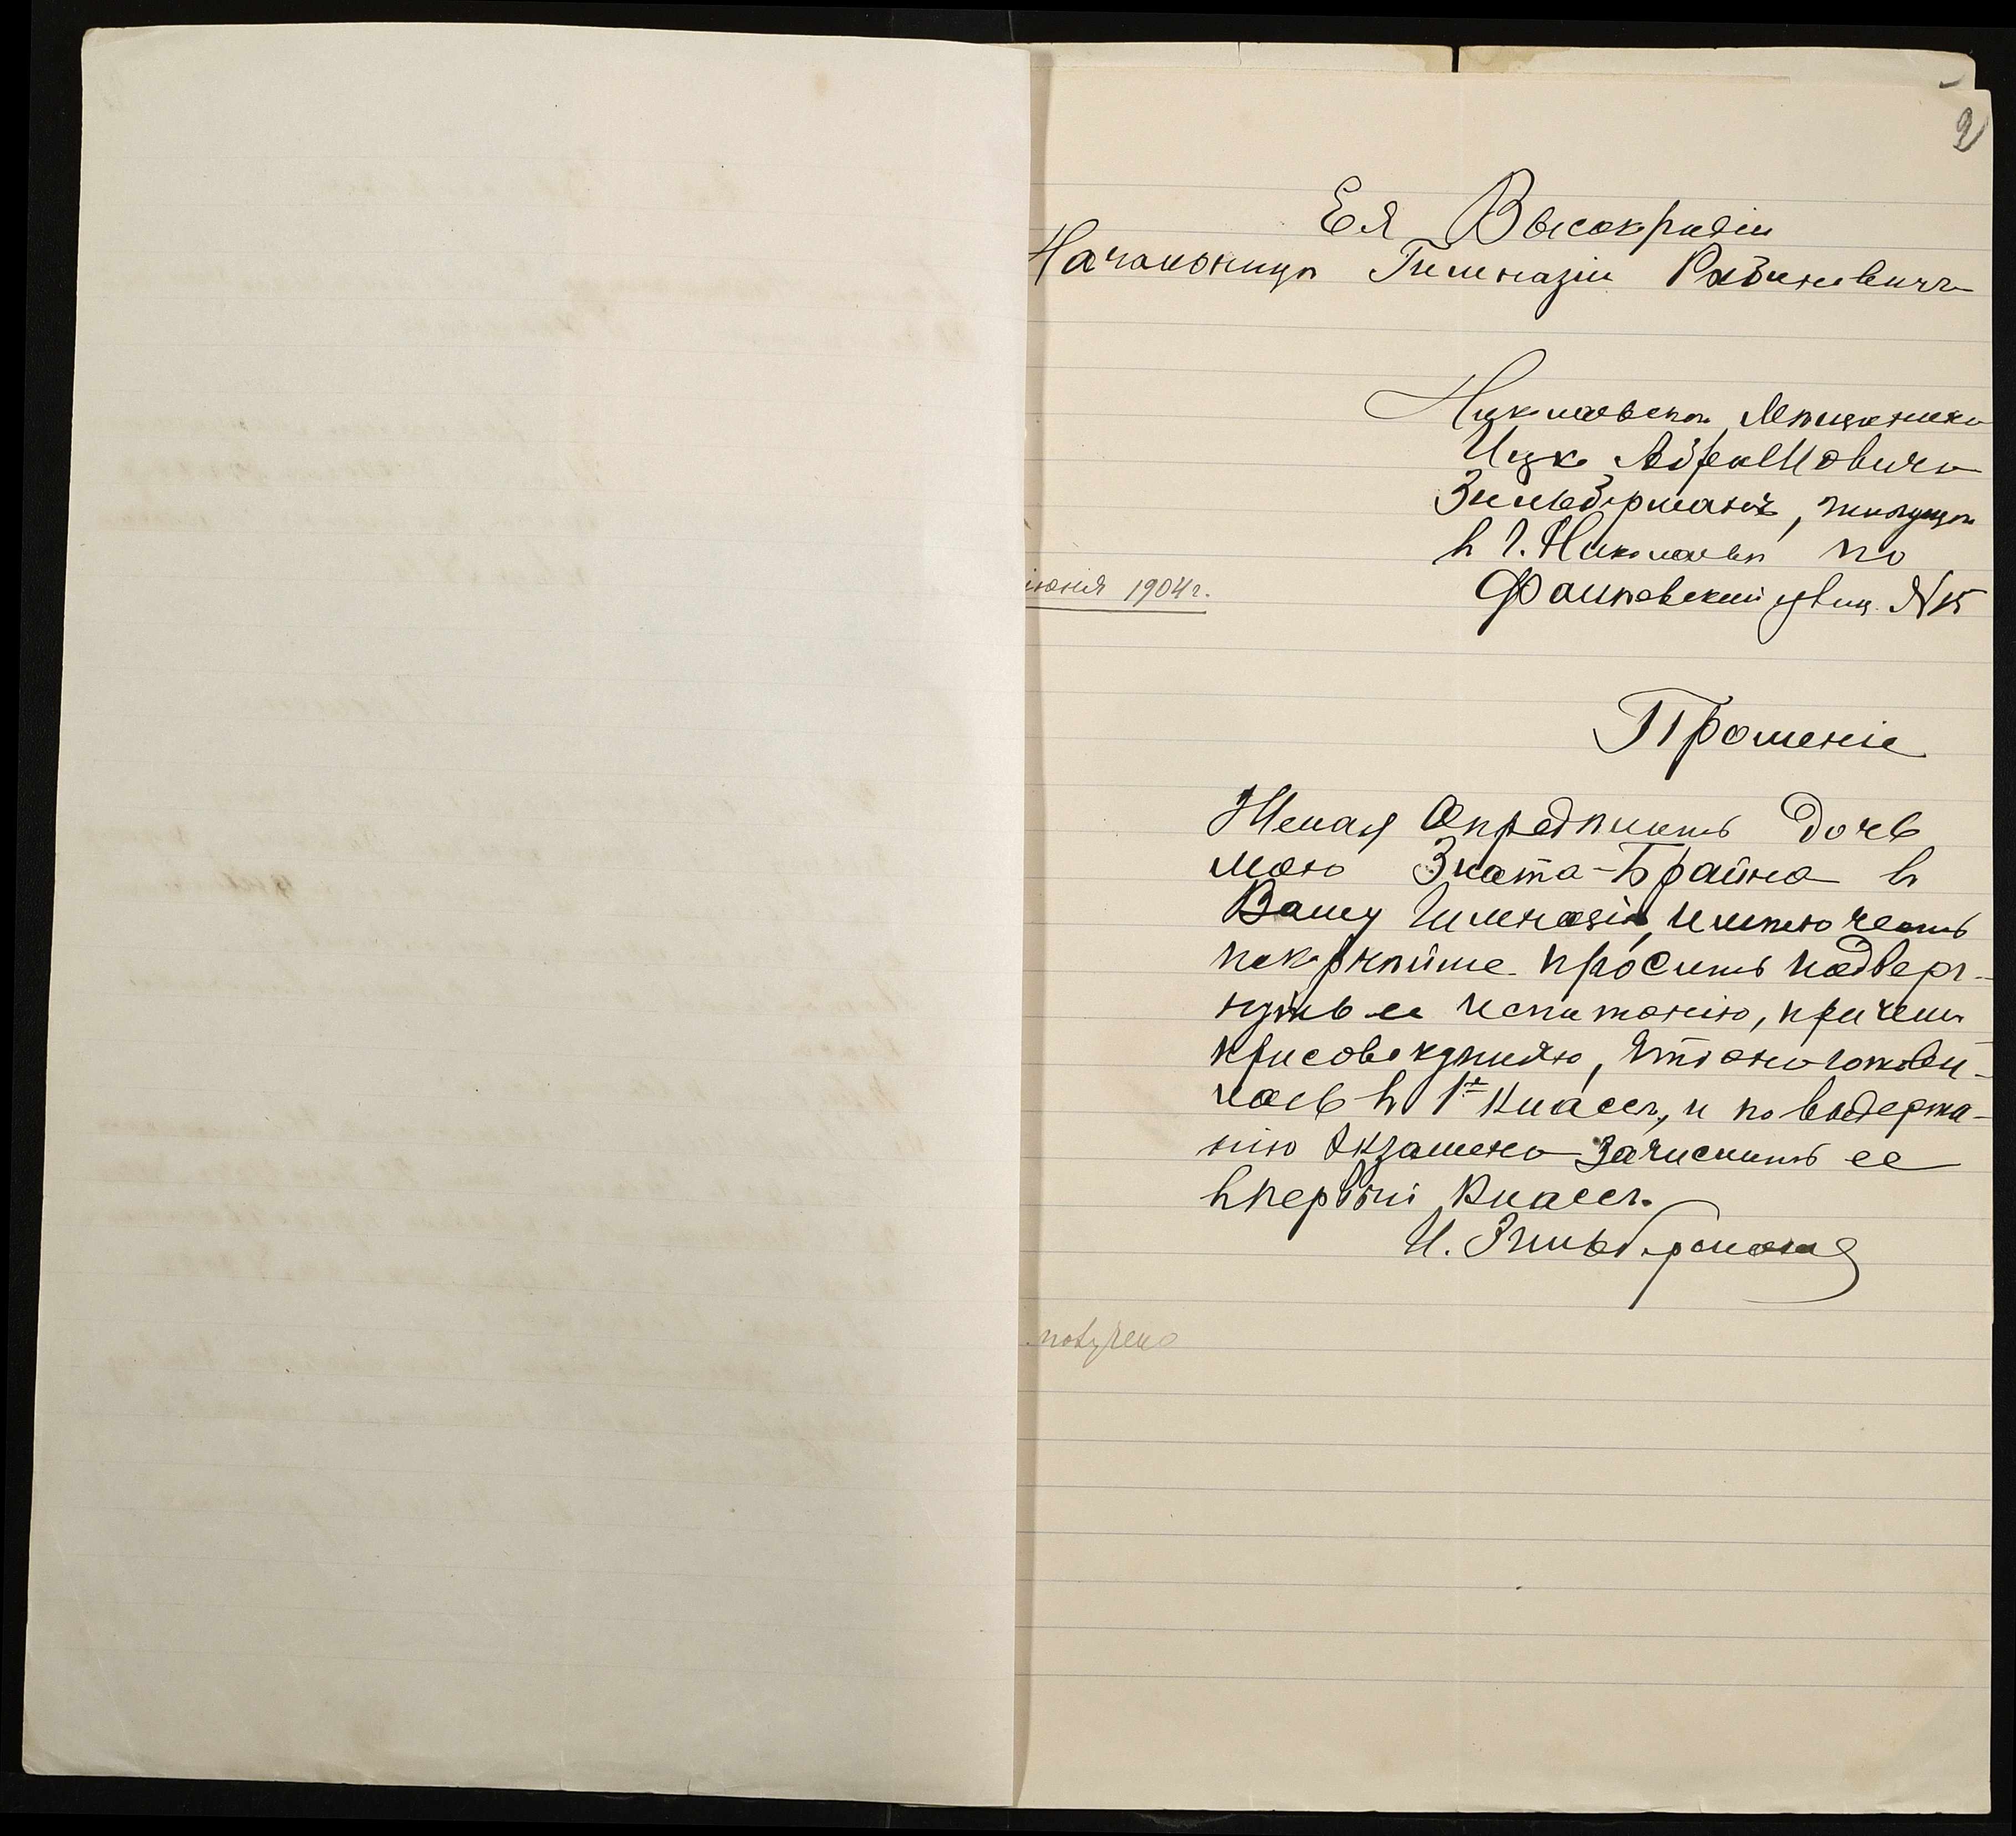 2
Ея Высокридіи
Начальницѣ Гимназіи Рабиновичъ
Николаевскаго Мѣщанина
Ицко Абрамовича
Зильберманъ, живущаго
въ г. Николаевѣ по
Фалѣевский улиц. №15
іюня 1904 г.
Прошеніе
Желая Опредѣлить дочь
мою Злата-Брайна въ
Вашу Гимназію, имѣю честь
покорнѣйше просить подверг-
нуть ее испытанію, причемъ
присовокупляю, что она готови-
лась въ 1й классъ, и по выдержа-
нію Экзамена зачислить ее
въ первый классъ.
И. Зильберманъ
получено